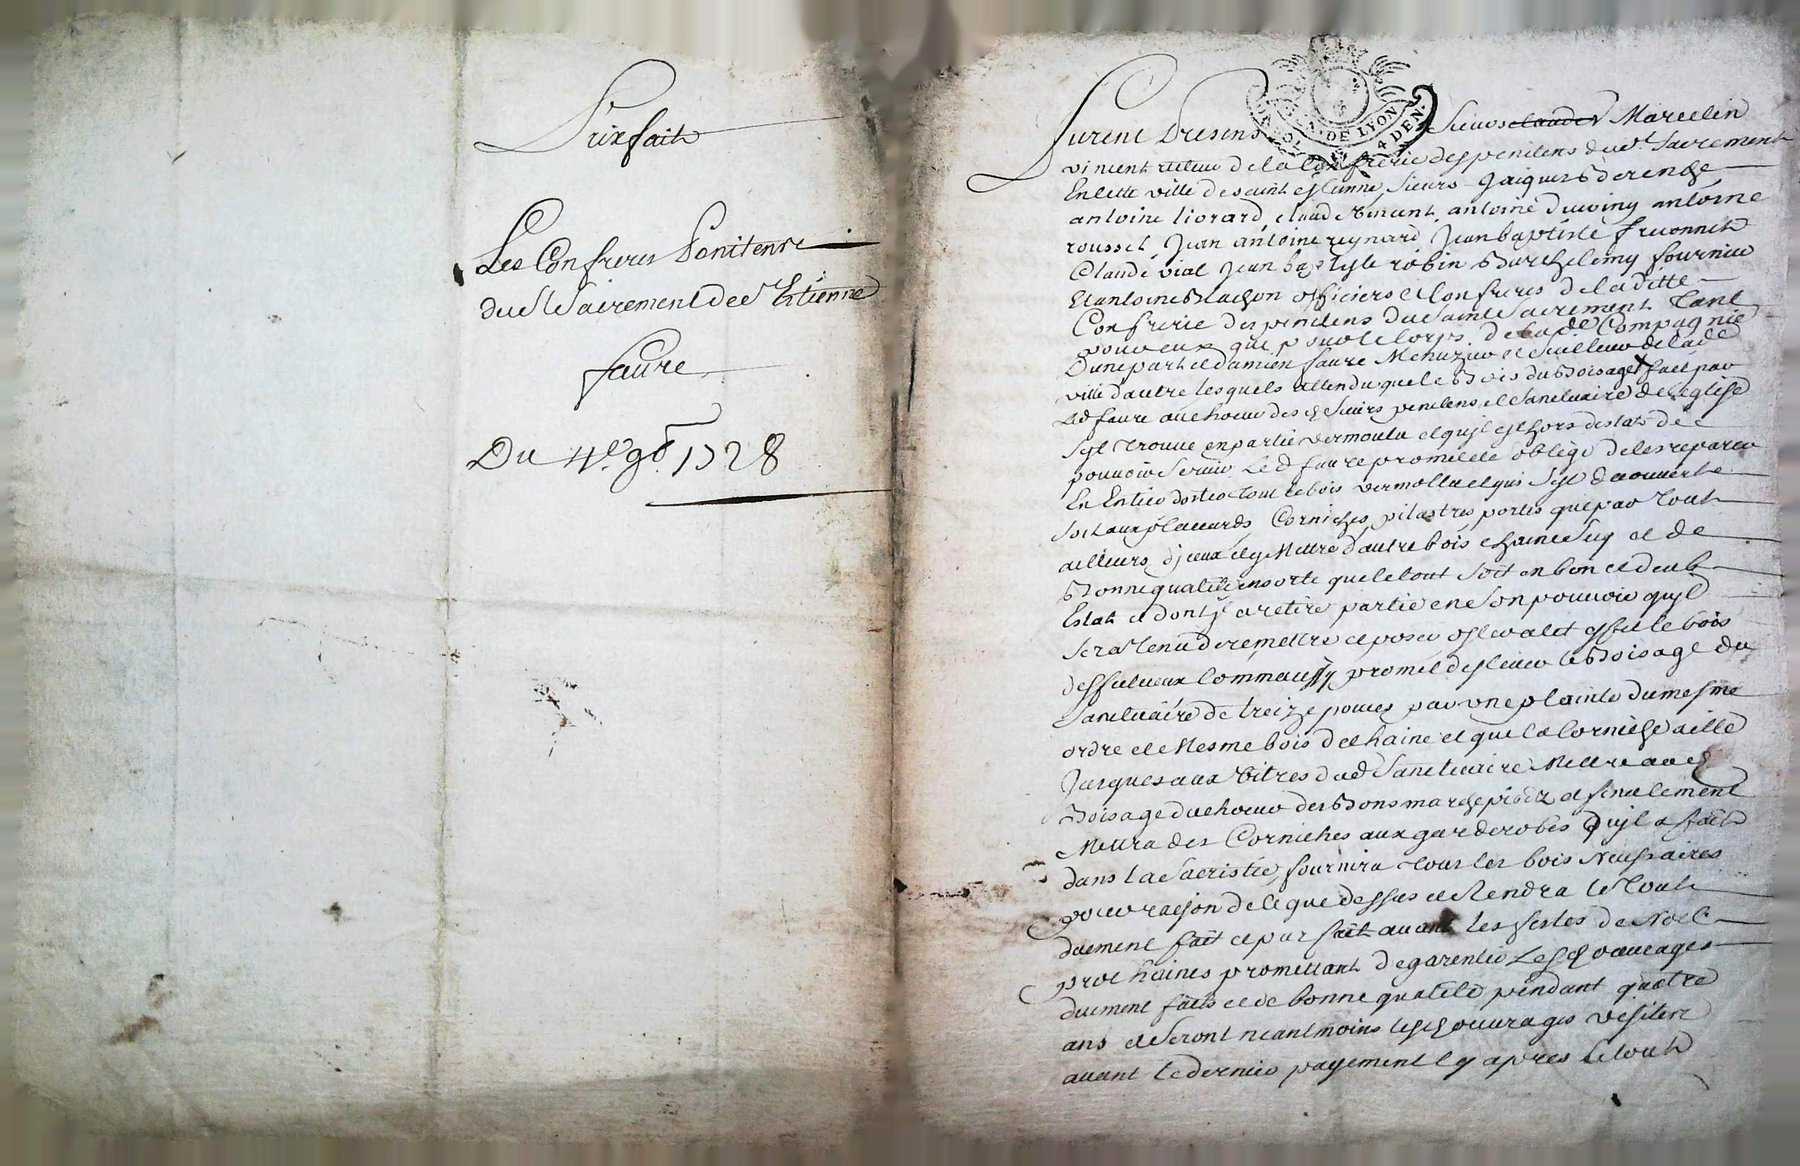 Prixfait
Les Confreres Penitens
du St Sacrement de St Etienne
faure
Du 4e 9b 1728
GN. DE LYON
4 DEN.
Furent Presens Sieurs claude Marcelin
vincent recteur de la Confrerie des penitens du st. Sacrement
En cette ville de saint estienne, sieurs Jacques
antoine liorard, claude vincent, antoine antoine
roussel Jean antoine reynard Jean baptiste fruconnet
Claude vial Jean baptiste robin Barthelemy fournier
Et antoine officiers et Confreres de la ditte
Confrerie des penitens du saint sacrement Tant
pour eux que pour le corps de lade Compagnie
Dune part et damien faure Menuzier et Sculteur de lade
ville dautre lesquels attendu que le Bois du Boisage fait par
led faure au choeur desd Sieurs penitens et Sanctuaire de leglise
Sest trouve en partie vermoulu et quil est hors destat de
pouvoir servir Led faure promet et oblige de les reparer
En Entier doster tout le bois vermollu et qui sest decouvert
soit aux placards Corniches pilastres portes que par tout
ailleurs diceux et y Mettre dautre bois chaine sec et de
Bonne qualite en sorte que le tout soit en bon et deub
Estat et dont il a retire partie en son pouvoir quil
sera tenu de remettre et poser et le bois
deffectueux Comme aussy promet deslever le Boisage du
Sanctuaire de treize pouces par une plainte du mesme
ordre et Mesme bois de chaine et que la Corniche aille
Jusques aux vitres dud Sanctuaire Mettre aud
Boisage du choeur des Bons marchepiedz et finalement
Mettra des Corniches aux garderobes quil a fait
dans la Sacristie, fournira tous les bois Necessaires
pour raison de ce que dessus et Rendra le Tout
duement fait et parfait avant les festes de Noel
prochaines promettant de garentir Lesd ouvrages
duement faits et de bonne qualité pendant quatre
ans et seront neantmoins lesd ouvrages visitez
avant le dernier payement Cy apres le tout